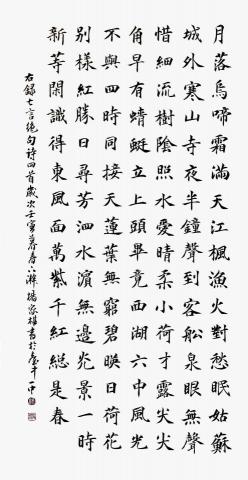 月落烏啼霜滿天江楓漁火對愁眠姑蘇
城外寒山寺夜半鐘聲到客船泉眼無聲
惜細流樹陰照水愛晴柔小荷才露尖尖
角早有蜻蜓立上頭畢竟西湖六中風光
不與四時同接天蓮葉無窮碧映日荷花
別樣紅勝日尋芳泗水濱無邊光景一時
新等閒識得東風面萬紫千紅總是春
右錄七言絕句詩四首歲次壬寅暮春楊家書於臺中一中